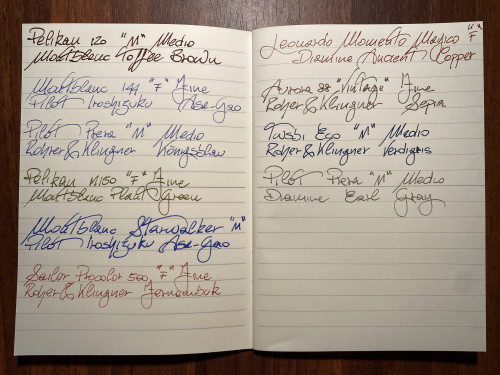 Pelikan 120 "M" Medio
Montblanc Toffee Brown
Montblanc 144 "F" Fine
Pilot Iroshizuku Asa-Gao
Pilot Prera "M" Medio
Rohrer & Klingner Königsblau
Pelikan M150 "F" Fine
Montblanc Plant Green
Montblanc Starwalker "M"
Pilot Iroshizuku Asa-Gao
Sailor Procolor 500 "F" Fine
Rohrer & Klingner Fernambuk
Leonardo Momento Magico "F"
Diamine Ancient Copper
Aurora 88 "Vintage" Fine
Rohrer & Klingner Sepia
Twsbi Eco "M" Medio
Rohrer & Klingner Verdigris
Pilot Prera "M" Medio
Diamine Earl Gray